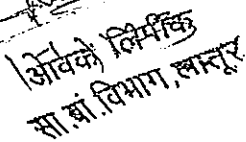 (आवेक) लिपीक
सा.बां.विभाग, लातूर